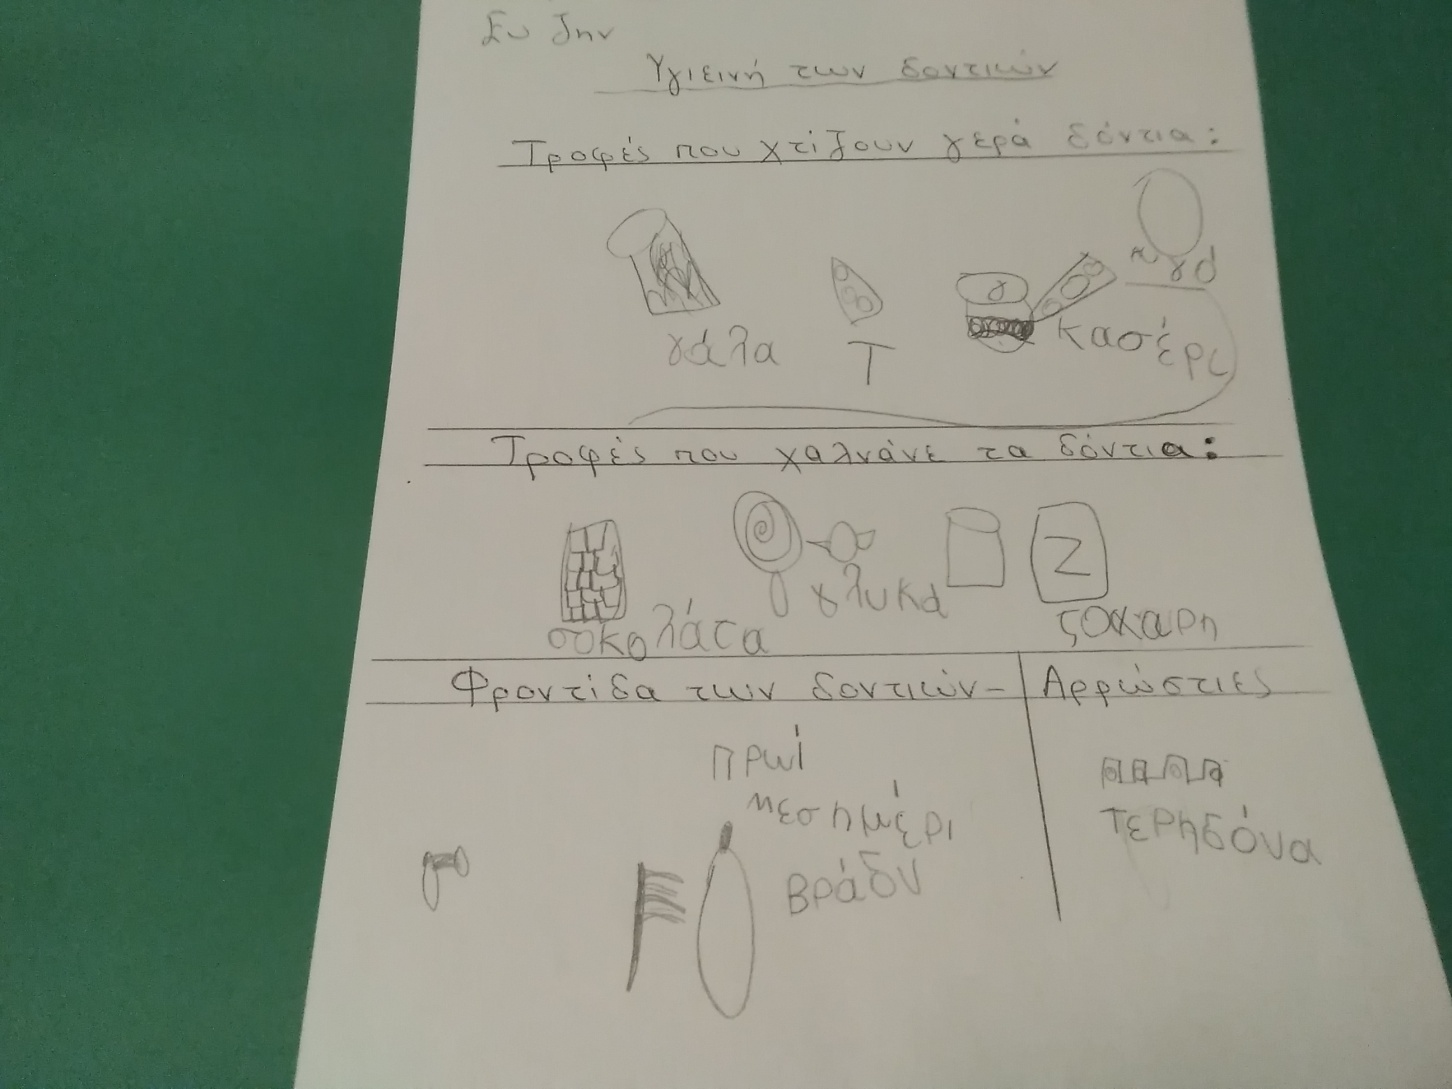 Υγιεινή των δοντιών
Τροφές που χτίζουν γερά δόντια:
γάλα
Τ
γ
κασέρι
Τροφές που χαλνάνε τα δόντια:
σοκολάτα
γλυκά
Ζ
ζΟχαρη
Φροντίδα των δοντιών - Αρρώστιες
πρωί
μεσημέρι
Βράδυ
τερηδόνα